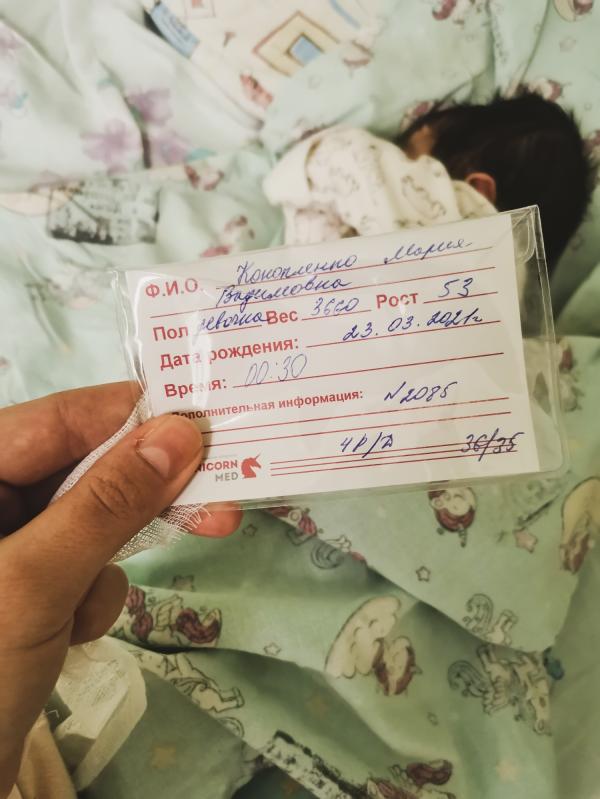 Ф.И.О. Конопленко Мария
Вадимовна
Пол девочка Вес 3660 Рост 53
Дата рождения: 23.03.2021г
Время: 00:30
Дополнительная информация: N2085
4Р/Д 36/35
UNICORN
MED